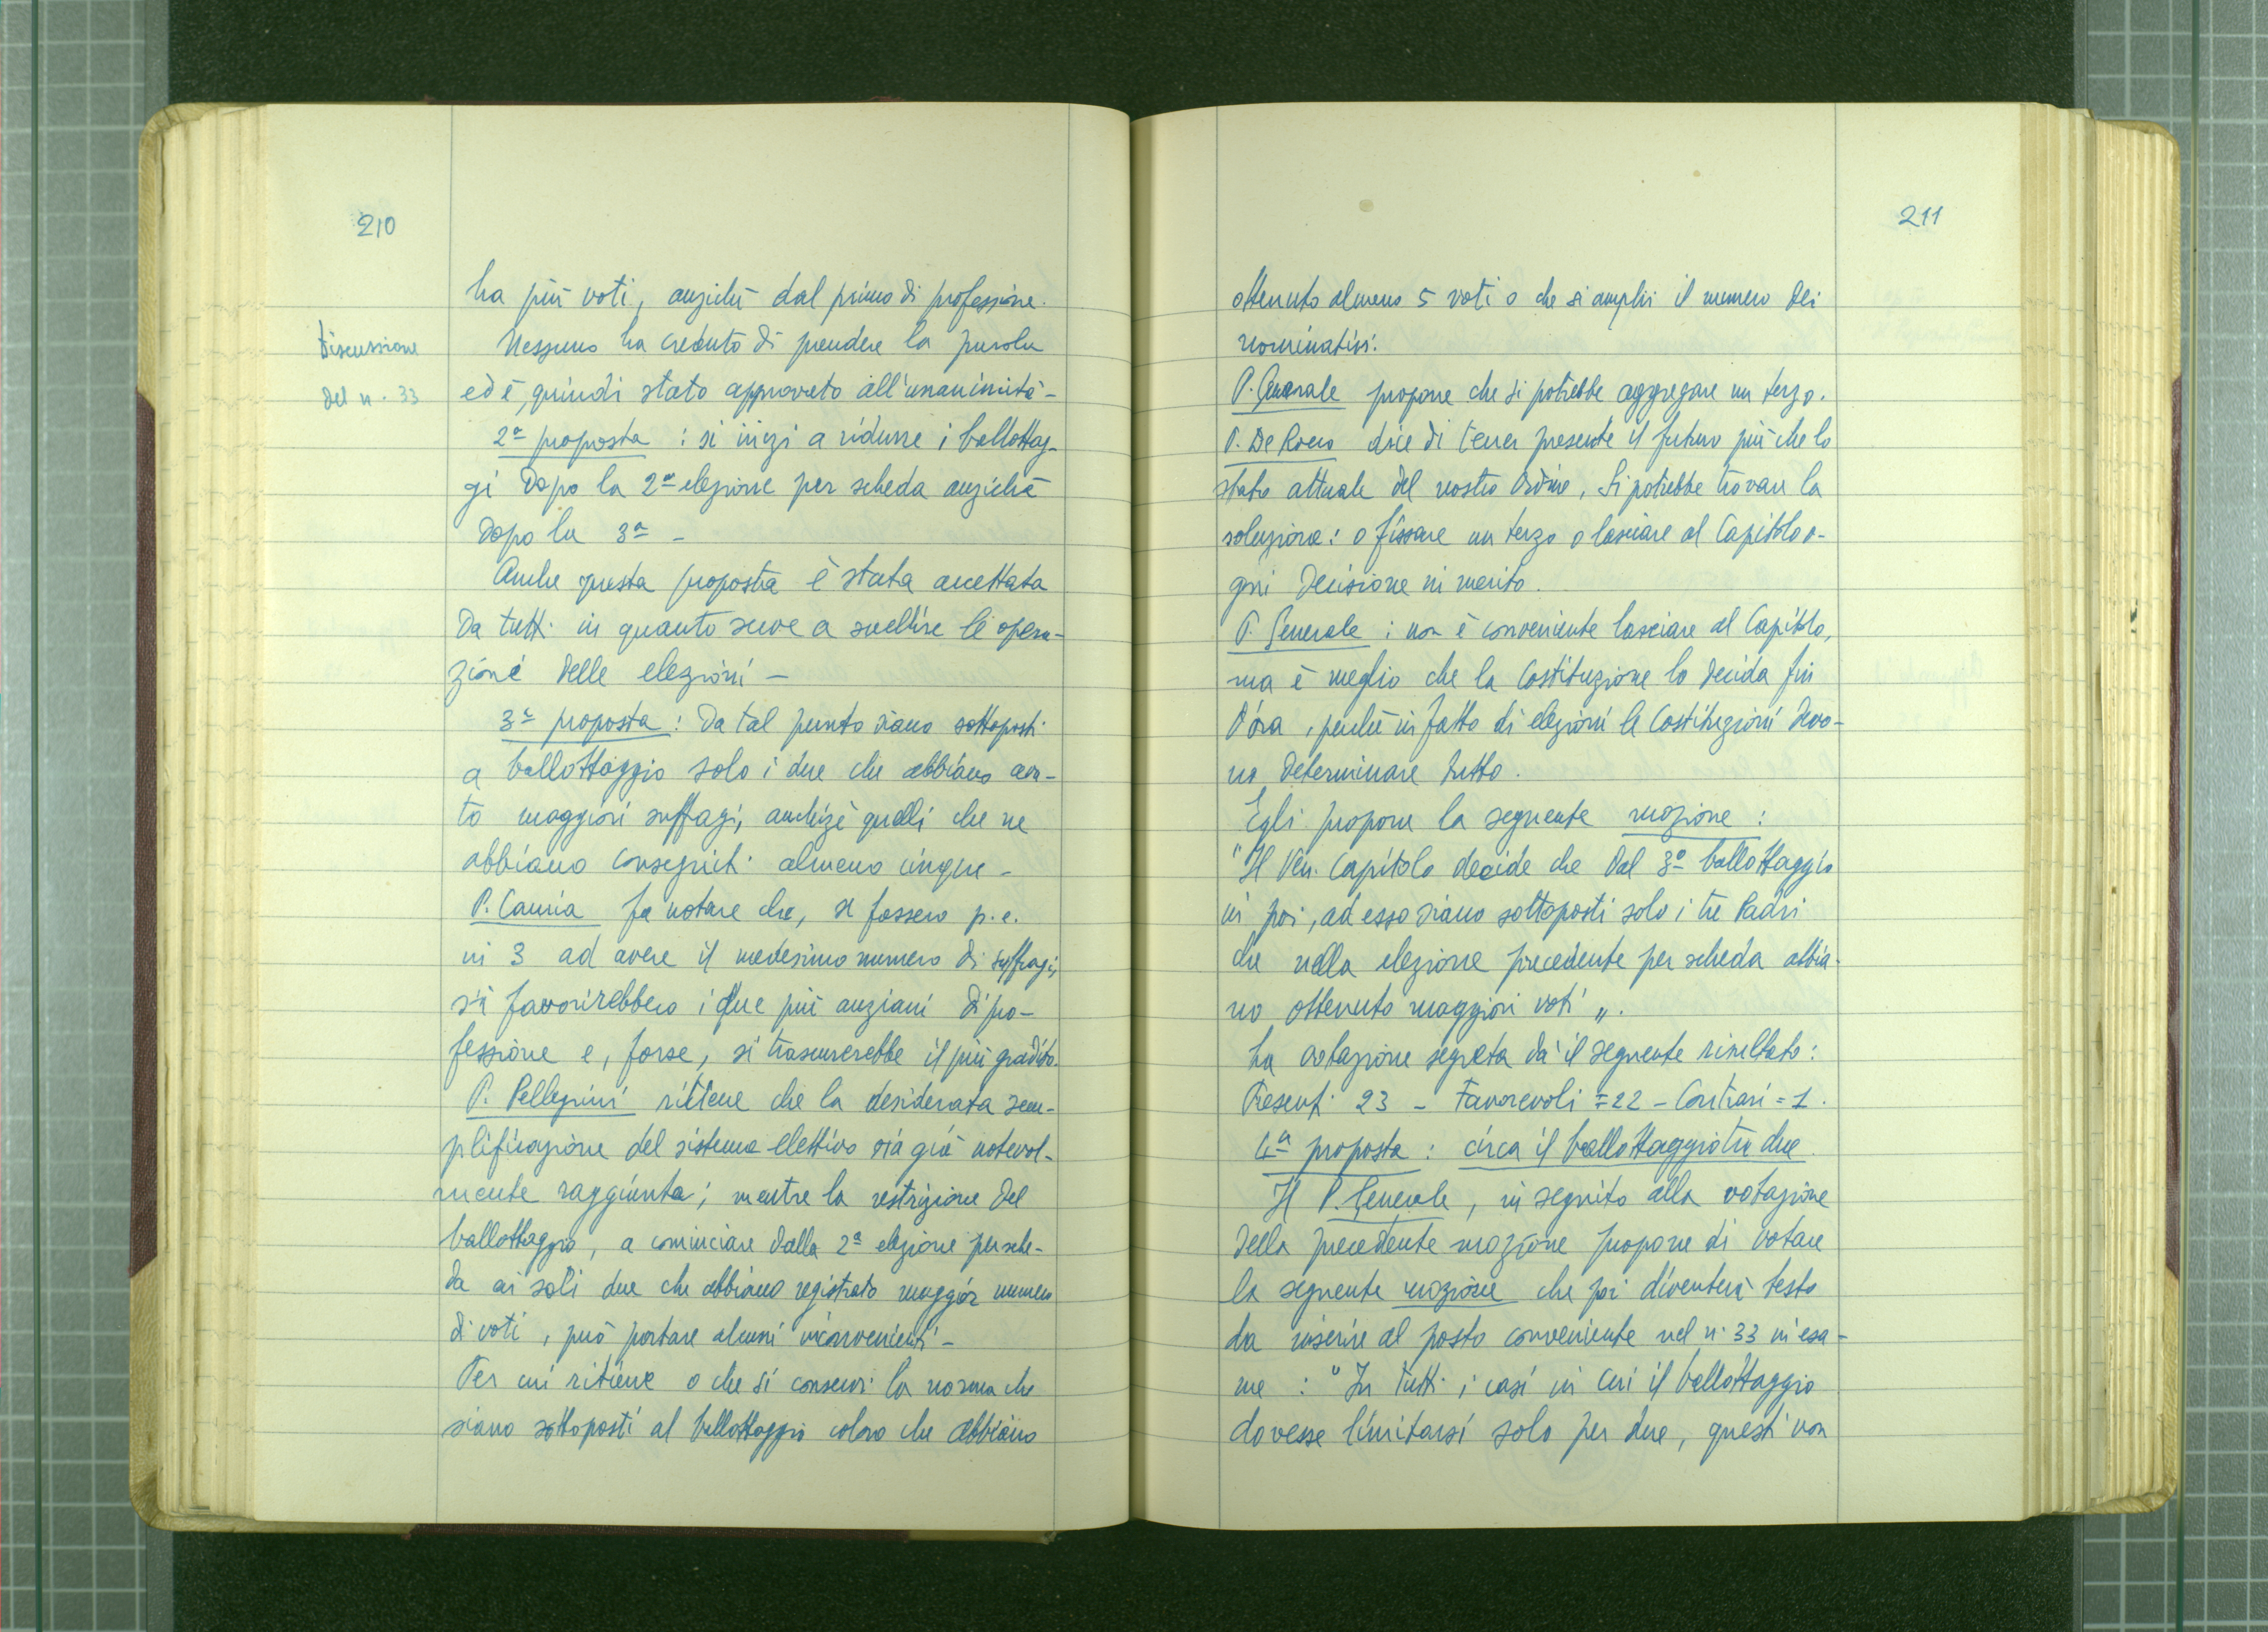 210
ha più voti, anziché dal primo di professione.
Discussione
del n. 33
Nessuno ha creduto di prendere la parola
ed è, quindi stato approvato all'unanimità -
2ª proposta : si inizi a ridurre i ballottag-
gi dopo la 2ª elezione per scheda anziché
dopo la 3ª -
Anche questa proposta è stata accettata
da tutti in quanto serve a snellire le opera-
zioni delle elezioni -
3ª proposta : Da tal punto siano sottoposti
a ballottaggio solo i due che abbiano avu-
to maggiori suffragi, anchizè quelli che ne
abbiano conseguiti almeno cinque -
P. Cauria fa notare che, se fossero p.e.
in 3 ad avere il medesimo numero di suffragi,
si favorirebbero i due più anziani di pro-
fessione e, forse, si trascurerebbe il più gradito.
P. Pellegrini ritiene che la desiderata sem-
plificazione del sistema elettivo sia già notevol-
mente raggiunta; mentre la restrizione del
ballottaggio, a cominciare dalla 2ª elezione per sche-
da ai soli due che abbiano registrato maggior numero
di voti, può portare alcuni inconvenienti -
Per cui ritiene o che si conservi la norma che
siano sottoposti al ballottaggio coloro che abbiano
211
ottenuto almeno 5 voti o che si amplii il numero dei
nominativi.
P. Generale propone che si potrebbe aggregare un terzo.
P. De Rocco dice di tener presente il futuro più che lo
stato attuale del nostro Ordine, Si potrebbe trovare la
soluzione: o fissare un terzo o lasciare al Capitolo o-
gni decisione in merito.
P. Generale : non è conveniente lasciare al Capitolo,
ma è meglio che la Costituzione lo decida fin
d'ora, perché in fatto di elezioni le Costituzioni devo-
no determinare tutto.
Egli propone la seguente mozione :
"Il Ven. Capitolo decide che dal 3º ballottaggio
in poi, ad esso siano sottoposti solo i tre Padri
che nella elezione precedente per scheda abbia-
no ottenuto maggiori voti".
La votazione segreta dà il seguente risultato:
Presenti 23 - Favorevoli = 22 - Contrari = 1.
4ª proposta : circa il ballottaggio tra due.
Il P. Generale, in seguito alla votazione
della precedente mozione propone di votare
la seguente mozione che poi diventerà testo
da inserire al posto conveniente nel n. 33 in esa-
me : "In tutti i casi in cui il ballottaggio
dovesse limitarsi solo per due, questi non